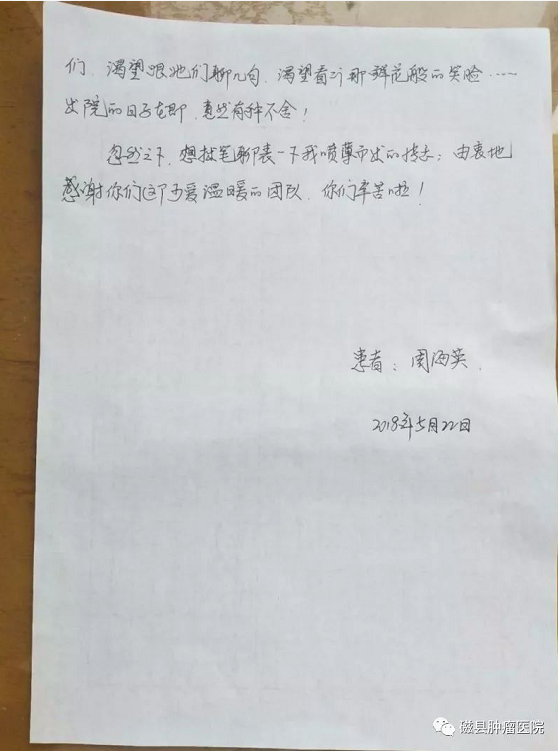 们、渴望跟她们聊几句，渴望看到那鲜花般的笑脸……
出院的日子在即，竟然有种不舍！
忽然之下，想拙笔聊表一下我喷薄而出的情 ：由衷地
感谢你们这个 爱温暖的团队，你们辛苦啦！
患者：周 英.
2018年5月22日
磁县肿瘤医院